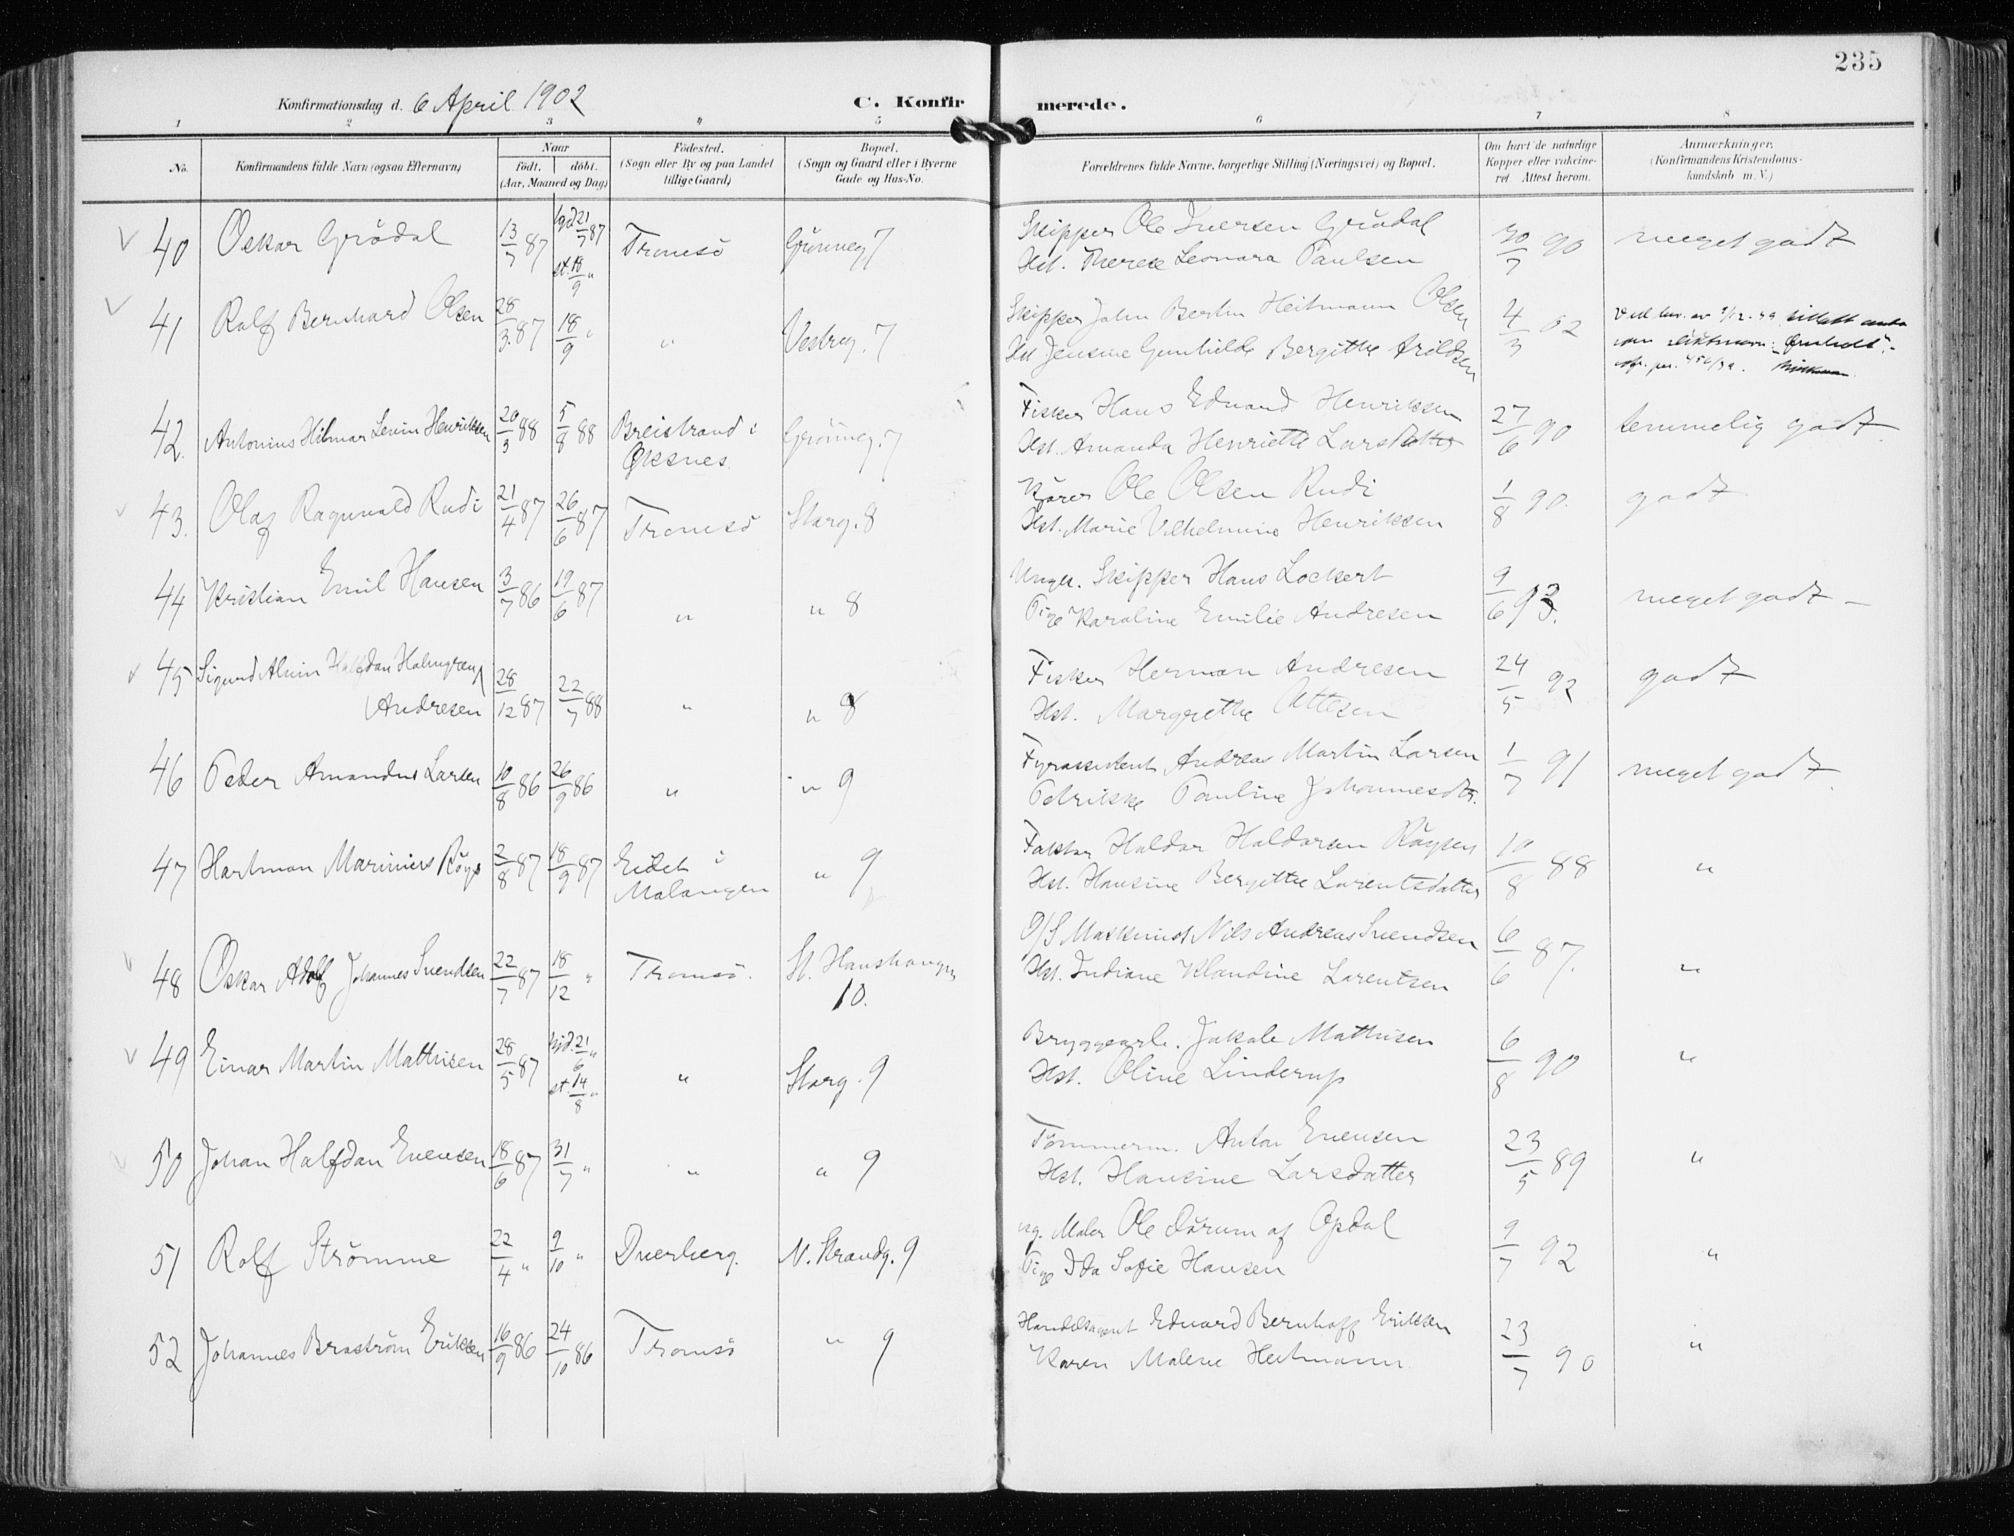 235
Konfirmationsdag d. 6 April 1902
C. Konfirmerede.
1 2 3 4 5 6 7 8
No. Konfirmandens fulde Navn (ogsaa Efternavn) Naar født, døbt. (Aar, Maaned og Dag) Födested. (Sogn eller By og paa Landet tillige Gaard) Bopæl. (Sogn og Gaard eller i Byerne Gade og Hus-No. Forældrenes fulde Navne, borgerlige Stilling (Næringsvei) og Bopæl. Om havt de naturlige Kopper eller vakcineret. Attest herom. Anmærkninger. (Konfirmandens Kristendomskundskab m. V.)
40 Oskar Grödal 13/7 87 hjd 21/7 87 st. 18/9 " Tromsö Grönneg. 7 Skipper Ole Iversen Grödal 30/7 90 meget godt
Hst. Therese Leonora Paulsen
41 Rolf Bernhard Olsen 28/3 87 18/9 " " Vestreg. 7 Skipper John Berthn Heitmann Olsen 4/3 02
Hst Jensine Gunhilde Bergitte Arildsen
42. Antonius Hilmar Levin Henriksen 20/3 88 5/8 88 Breistrand i Øksnes. Grönneg. 7 Fisker Hans Edvard Henriksen 27/6 90 temmelig godt
Hst. Amanda Henriette Larsdatter
43. Olaf Ragnvald Rudi 21/4 87 26/6 87 Tromsö Storg. 8 Kjører Ole Olsen Rudi 1/8 90. godt
Hst. Marie Vilhelmine Henriksen
44 Kristian Emil Hansen 3/7 86 19/6 87 " " 8 Ungk. Skipper Hans Lockert 9/6 93. meget godt
Pige Karoline Emilie Andresen
45 Sigurd Alvin Halfdan Holmgren Andresen 28/12 87 22/7 88 " " 8 Fisker Herman Andresen 24/5 92 godt
Hst. Margrethe Ottesen
46 Peder Amandus Larsen 10/8 86 26/9 86 " " 9 Fyrassistent Andreas Martin Larsen 1/7 91 meget godt
Petrikke Pauline Johannesdtr.
47 Hartman Marinius Röys 2/8 87 18/9 87 Eidet i Malangen " 9 Faktor Haldor Haldorsen Röysen 10/8 88 "
Hst. Hansine Bergitte Larentsdatter
48 Oskar Adolf Johannes Svendsen 22/7 87 18/12 " Tromsö. St. Hanshaugen 10. D/S Maskinist Nils Andreas Svendsen 6/6 87. "
Hst. Indiane Klaudine Larentsen
49 Einar Martin Mathisen 28/5 87 hjd. 21/6 " st. 14/8 " " Storg. 9 Bryggearb. Jakob Mathisen 6/8 90 "
Hst. Oline Linderup
50 Johan Halfdan Evensen 18/6 87 31/7 " " " 9 Tömmerm. Anton Evensen 23/5 89 "
Hst. Hansine Larsdatter
51 Rolf Strömme 22/4 " 9/10 " Dverberg. N. Strandg. 9 ug. Maler Ole Dörum af Opdal 9/7 92 "
Pige Ida Sofie Hansen
52 Johannes Braström Eriksen 16/9 86 24/10 86 Tromsö " 9 Handelsagent Edvard Bernhoff Eriksen 23/7 90 "
Karen Malene Heitmann